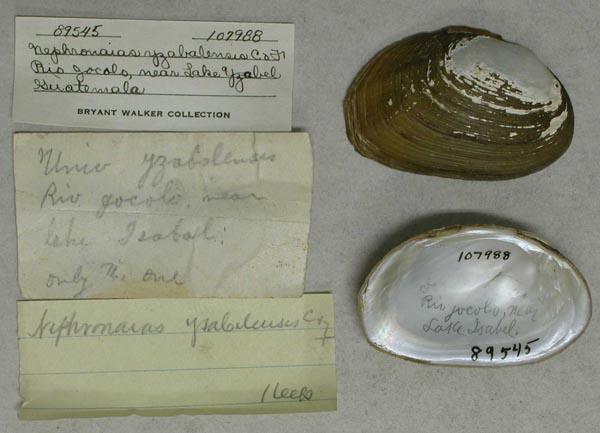 89545 107988
Nephronaias yzabalensis C&F
Rio Jocolo, near Lake Yzabel
Guatemala
BRYANT WALKER COLLECTION
Unio yzabalensis
Rio Jocolo, near
Lake Isabal.
only the one
Nephronaias yzabalensis C&F
1 keep
107988
Rio Jocolo, near
Lake Isabel.
89545